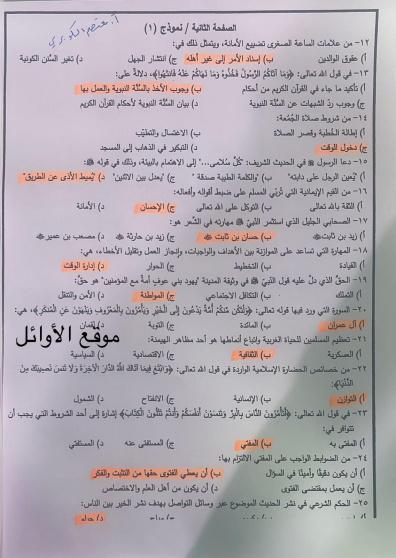 الصفحة الثانية / نموذج (١)
١٢- من علامات الساعة الصغرى تضييع الأمانة، ويتمثل ذلك في:
أ) عقوق الوالدين ب) إسناد الأمر إلى غير أهله ج) انتشار الجهل د) تغير السُّنن الكونية
١٣- في قول الله تعالى: ﴿وَمَا آتَاكُمُ الرَّسُولُ فَخُذُوهُ وَمَا نَهَاكُمْ عَنْهُ فَانتَهُوا﴾، دلالةٌ على:
أ) تأكيد ما جاء في القرآن الكريم من أحكام ب) وجوب الأخذ بالسُّنة النبوية والعمل بها
ج) وجوب ردّ الشبهات عن السُّنّة النبوية د) بيان السُّنة النبوية لأحكام القرآن الكريم
١٤- من شروط صلاة الجُمُعة:
أ) إطالة الخُطبة وقصر الصلاة ب) الاغتسال والتطيّب
ج) دخول الوقت د) التبكير في الذهاب إلى المسجد
١٥- دعا الرسول ﷺ في الحديث الشريف: "كُلُّ سُلامى..." إلى الاهتمام بالبيئة، وذلك في قوله ﷺ:
أ) "يُعين الرجل على دابته" ب) "والكلمة الطيبة صدقة" ج) "يُعدل بين الاثنين" د) "يُميط الأذى عن الطريق"
١٦- من القيم الإيمانية التي تُربّي المسلم على ضبط أقواله وأفعاله:
أ) الثقة بالله تعالى ب) التوكل على الله تعالى ج) الإحسان د) الأمانة
١٧- الصحابي الجليل الذي استثمر النبيّ ﷺ مهارته في الشّعر هو:
أ) زيد بن ثابت ب) حسان بن ثابت ج) زيد بن حارثة د) مصعب بن عمير
١٨- المهارة التي تساعد على الموازنة بين الأهداف والواجبات، وإنجاز العمل وتقليل الأخطاء، هي:
أ) القيادة ب) التخطيط ج) الحوار د) إدارة الوقت
١٩- الحقّ الذي دلَّ عليه قول النبيّ ﷺ في وثيقة المدينة "يهود بني عوفٍ أمةٌ مع المؤمنين" هو حقّ:
أ) التملك ب) التكافل الاجتماعي ج) المواطنة د) الأمن والتنقل
٢٠- السورة التي ورد فيها قوله تعالى: ﴿وَلْتَكُن مِّنكُمْ أُمَّةٌ يَدْعُونَ إِلَى الْخَيْرِ وَيَأْمُرُونَ بِالْمَعْرُوفِ وَيَنْهَوْنَ عَنِ الْمُنكَرِ﴾، هي:
أ) آل عمران ب) المائدة ج) التوبة د) لقمان
موقع الأوائل
٢١- تعظيم المسلمين للحياة الغربية واتباع أنماطها هو أحد مظاهر الهيمنة:
أ) العسكرية ب) الثقافية ج) الاقتصادية د) السياسية
٢٢- من خصائص الحضارة الإسلامية الواردة في قول الله تعالى: ﴿وَابْتَغِ فِيمَا آتَاكَ اللَّهُ الدَّارَ الْآخِرَةَ وَلَا تَنسَ نَصِيبَكَ مِنَ
الدُّنْيَا﴾:
أ) التوازن ب) الإنسانية ج) الانفتاح د) الشمول
٢٣- في قول الله تعالى: ﴿أَتَأْمُرُونَ النَّاسَ بِالْبِرِّ وَتَنسَوْنَ أَنفُسَكُمْ وَأَنتُمْ تَتْلُونَ الْكِتَابَ﴾ إشارة إلى أحد الشروط التي يجب أن
تتوافر في:
أ) المفتى به ب) المفتي ج) المستفتى عنه د) المستفتي
٢٤- من الضوابط الواجب على المفتي الالتزام بها:
أ) أن يكون دقيقًا وأمينًا في السؤال ب) أن يعطي الفتوى حقها من التثبت والفكر
ج) أن يعمل بمقتضى الفتوى د) أن يكون من أهل العلم والاختصاص
٢٥- الحكم الشرعي في نشر الحديث الموضوع عبر وسائل التواصل بهدف نشر الخير بين الناس:
د) حرام